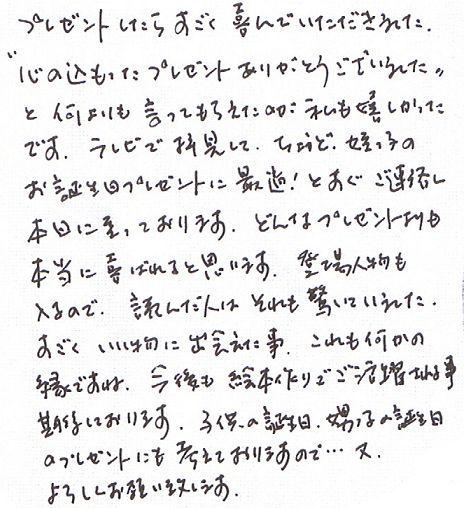 プレゼントしたらすごく喜んでいただきました。
"心の込もったプレゼントありがとうございました"
と何よりも言ってもらえたのが私も嬉しかった
です。テレビで拝見して、ちょうど、姪っ子の
お誕生日プレゼントに最適！とすぐご連絡し
本日に至っております。どんなプレゼントよりも
本当に喜ばれると思います。登場人物も
入るので、読んだ人はそれも驚いていました。
すごくいい物に出会えた事、これも何かの
縁ですね。今後も絵本作りでご活躍される事
期待しております。子供の誕生日、甥っ子の誕生日
のプレゼントにも考えておりますので…又、
よろしくお願い致します。